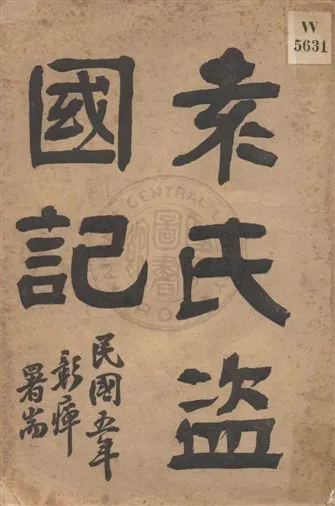 W
5631
袁氏盜
國記
民國五年
彰癉
署耑
CENTRAL
圖書